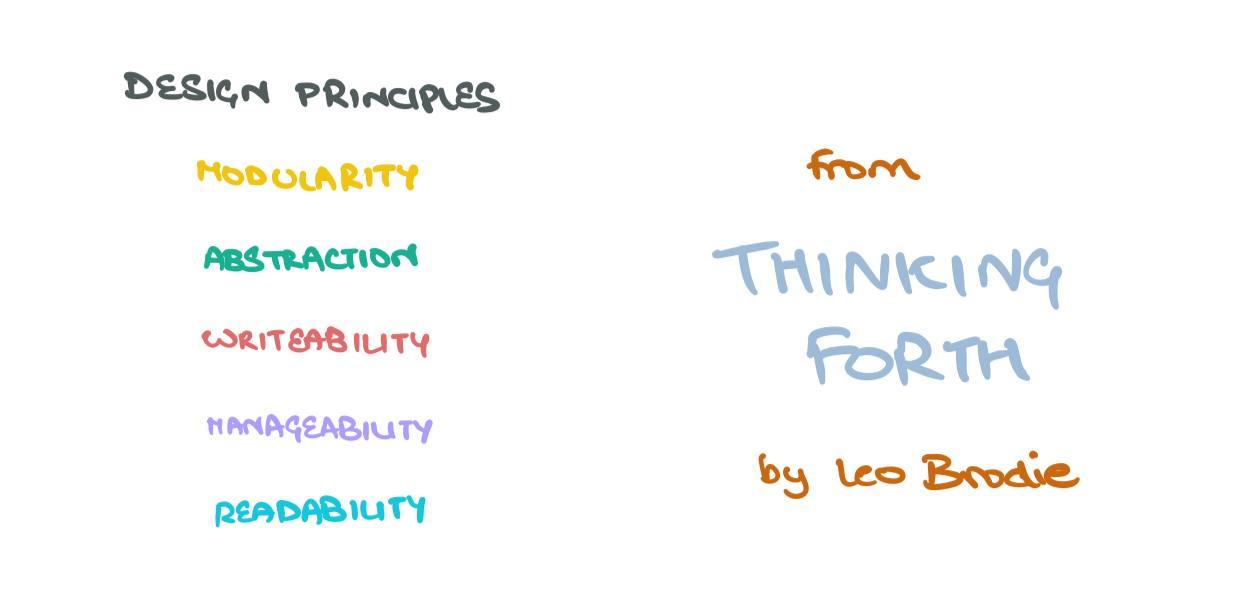 DESIGN PRINCIPLES
MODULARITY
ABSTRACTION
WRITEABILITY
MANAGEABILITY
READABILITY
from
THINKING
FORTH
by Leo Brodie